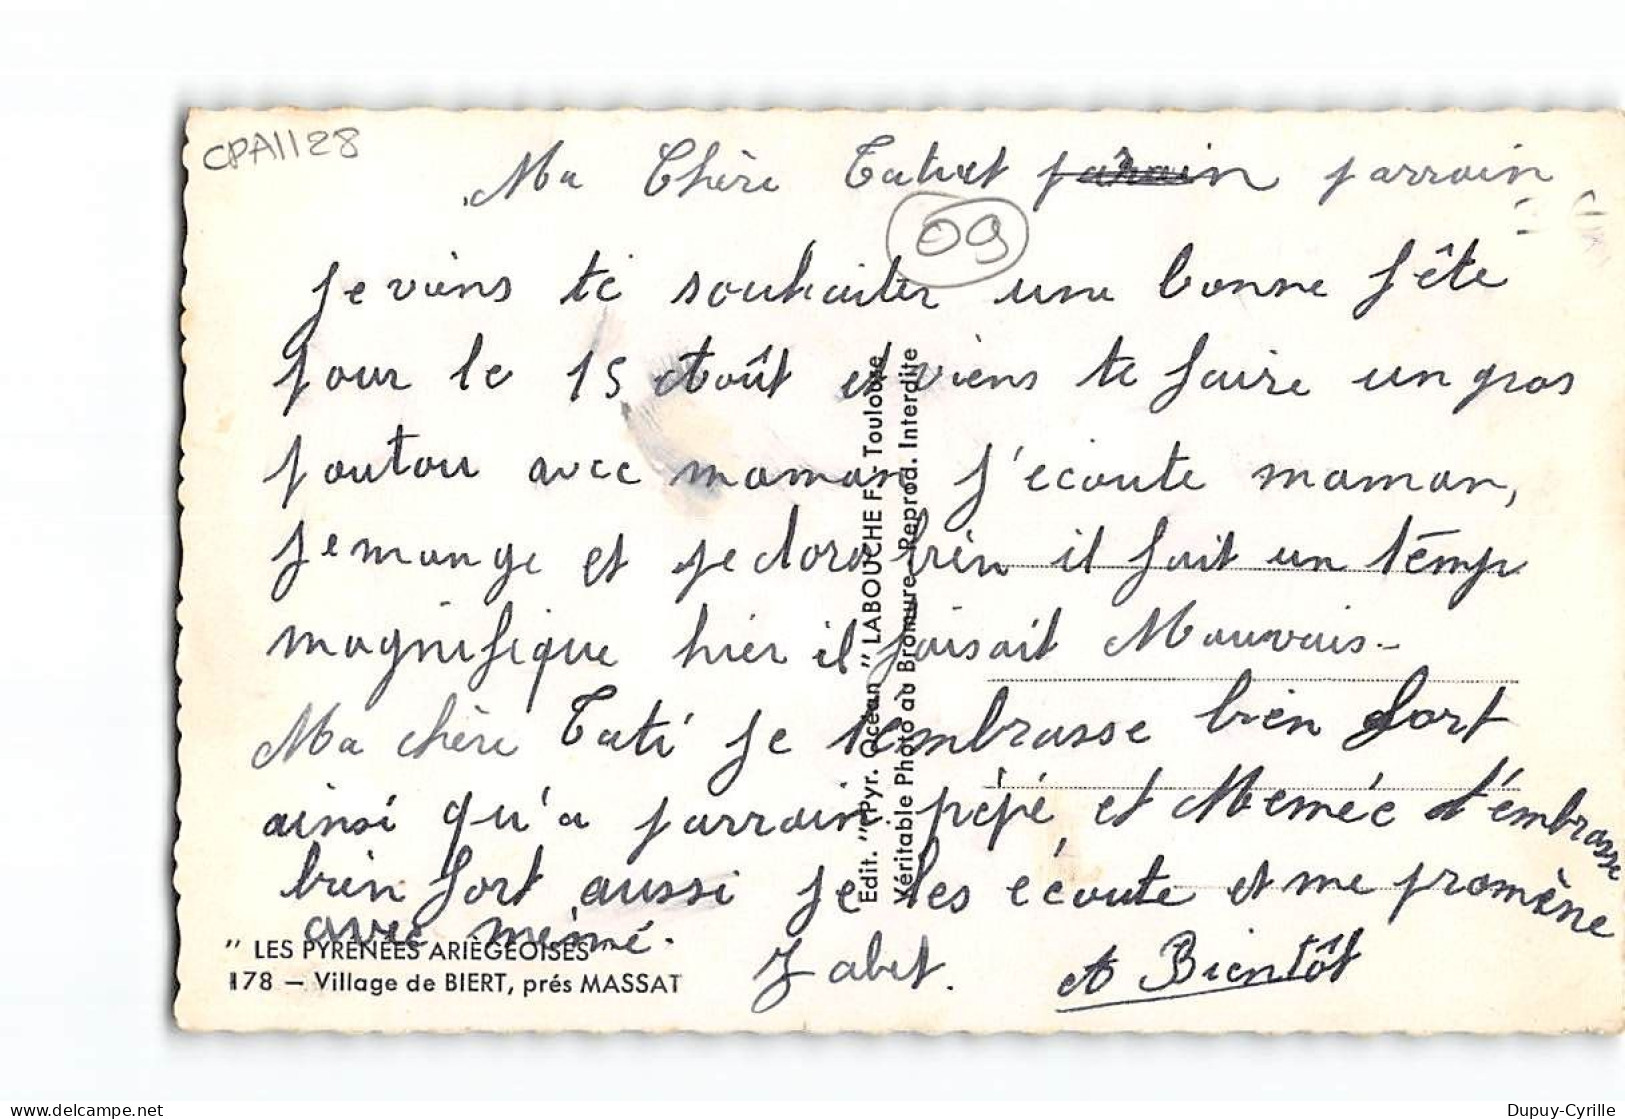 CPA1128
Ma Chère Tati et parrain parrain
09
Je viens te souhaiter une bonne fête
pour le 15 Août et viens te faire un gros
poutou avec maman J'écoute maman,
Je mange et je dors bien il fait un temp
magnifique hier il faisait Mauvais -
Ma chère Tati je t'embrasse bien fort
ainsi qu'a parrain pépé et Memée t'émbrasse
bien fort aussi je les écoute et me promène
avec mémé.
Zabet. A Bientôt
" LES PYRÉNÉES ARIÉGEOISES "
178 — Village de BIERT, prés MASSAT
Edit. "Pyr. Océan" LABOUCHE F. Toulouse
Véritable Photo au Bromure - Reprod. Interdite
delcampe.net
Dupuy-Cyrille